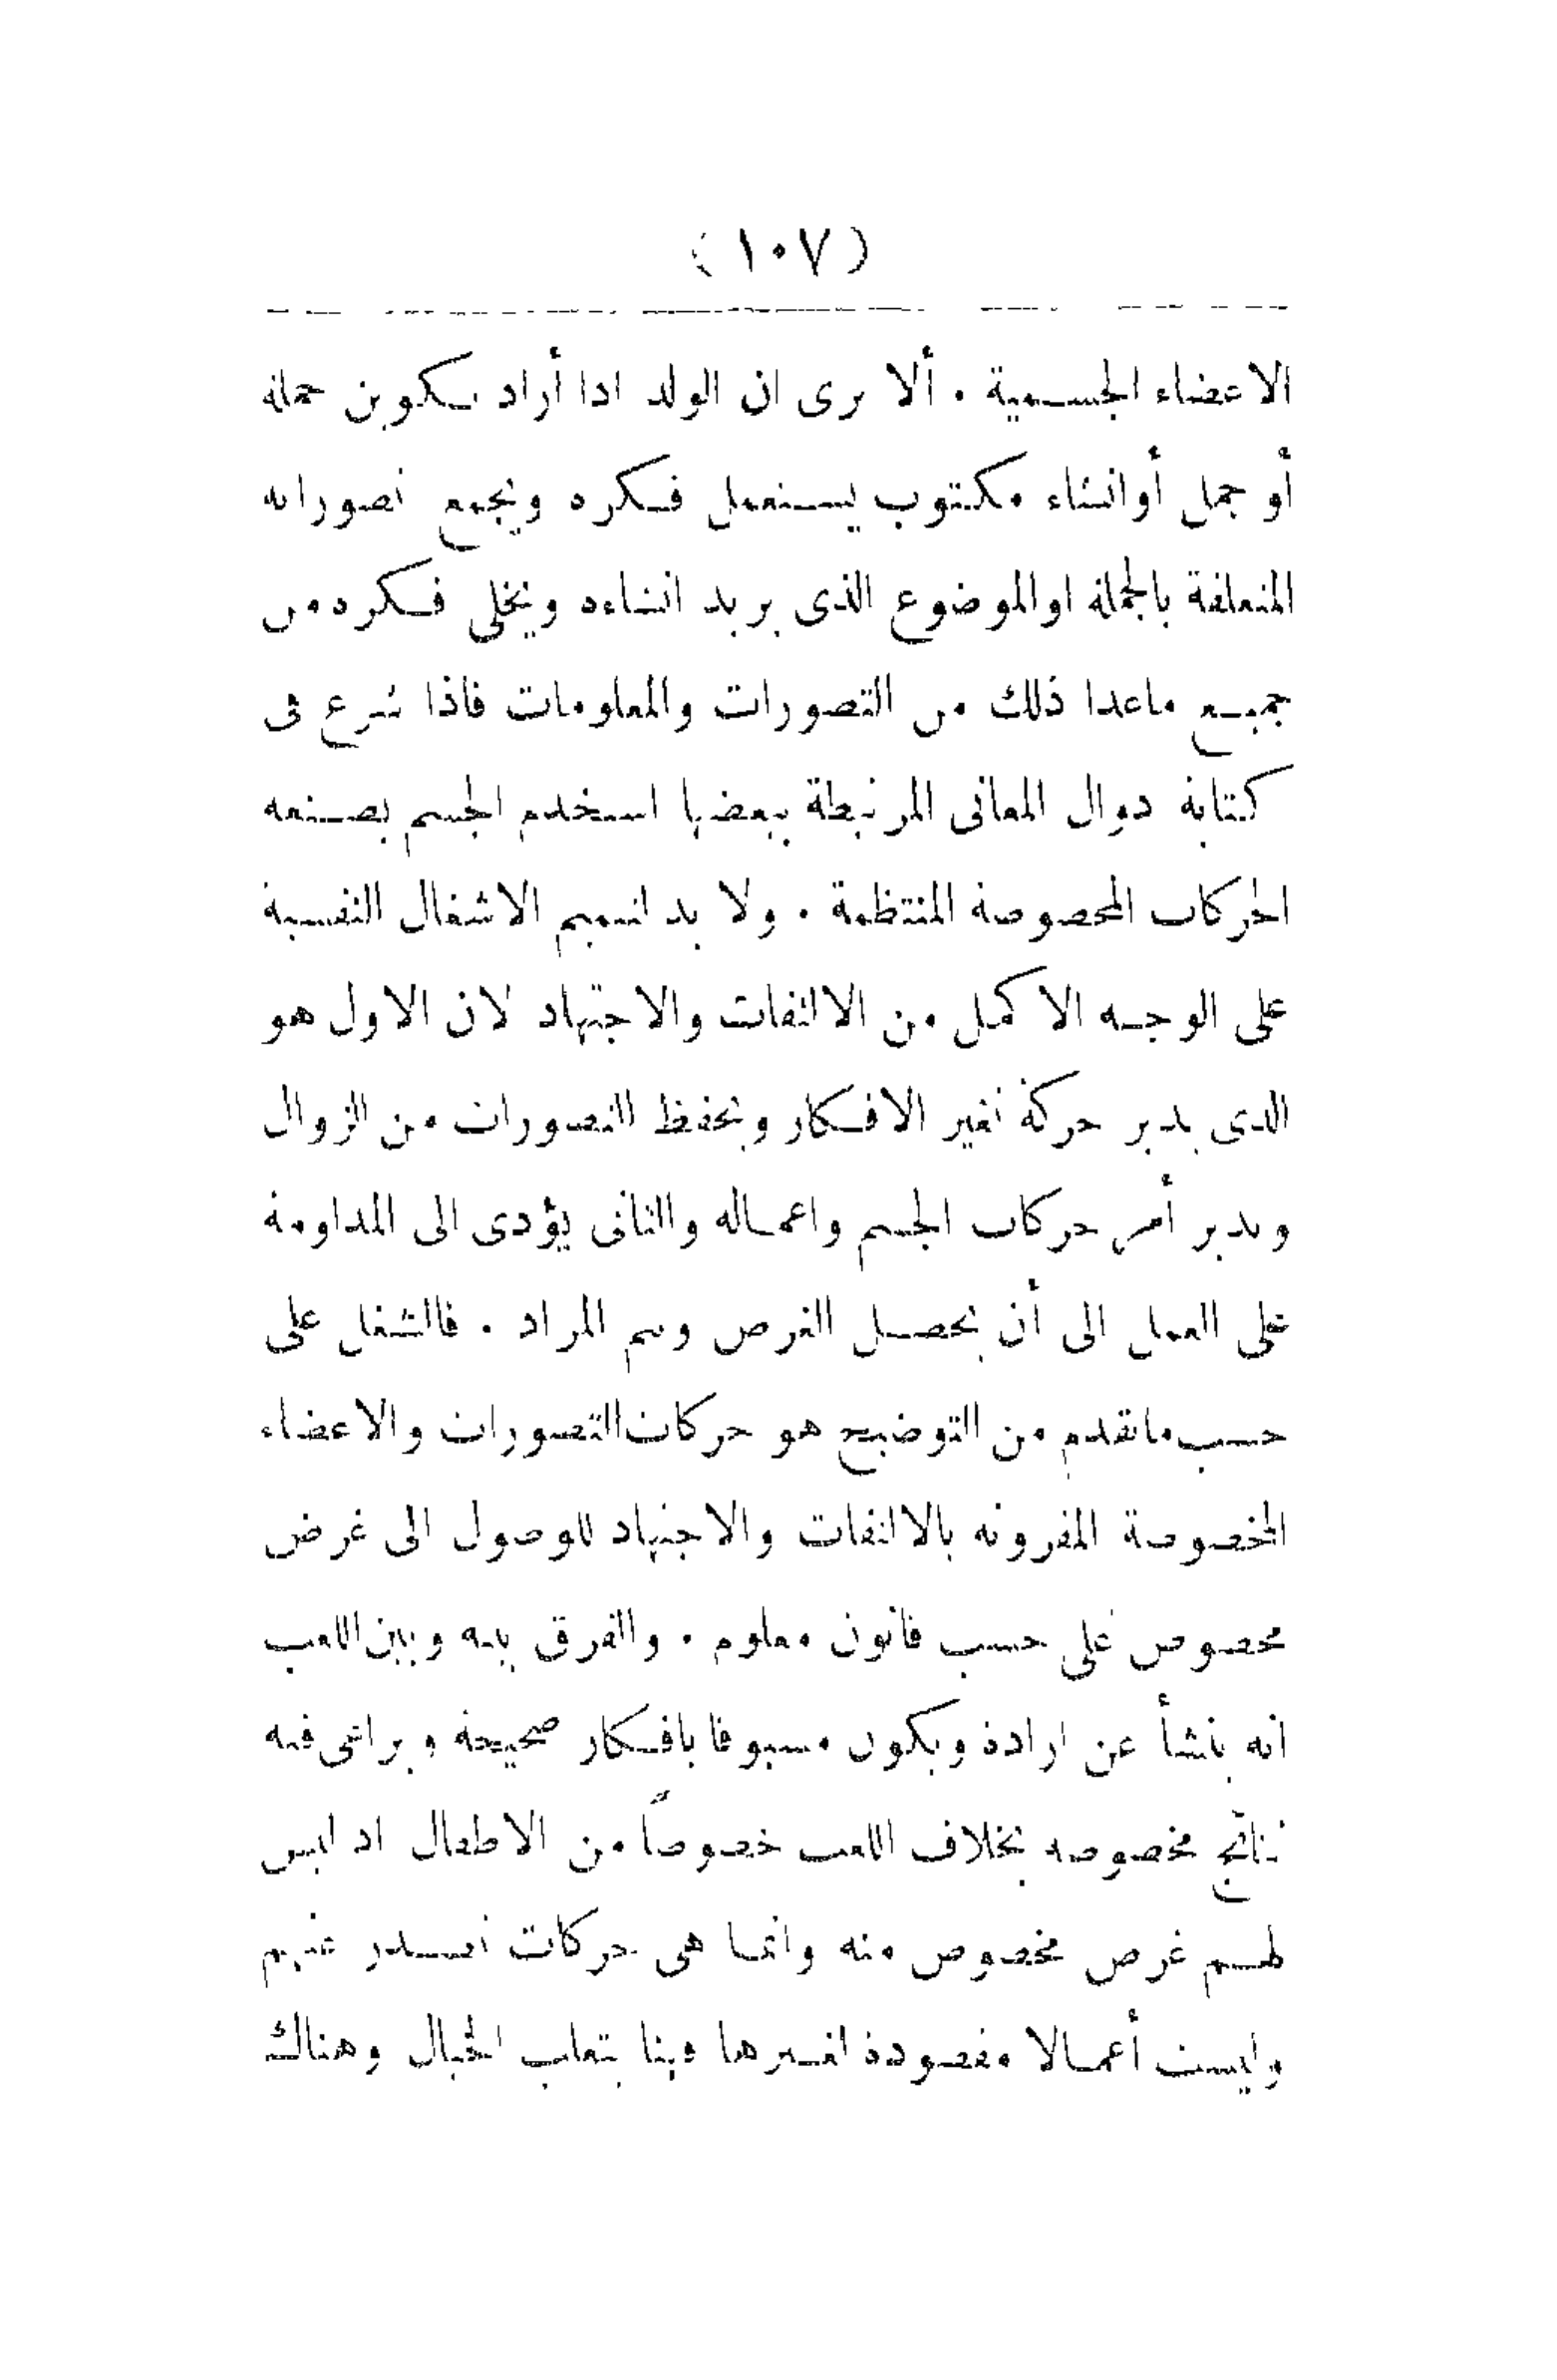 (١٠٧)
الاعضاء الجسمية . ألا ترى ان الولد اذا أراد تكوين جملة
أو جمل أوانشاء مكتوب يستعمل فكره ويجمع تصوراته
المتعلقة بالجملة اوالموضوع الذى يريد انشاءه ويخلى فكره من
جميع ماعدا ذلك من التصورات والمعلومات فاذا شرع فى
كتابة دوال المعانى المرتبطة ببعضها استخدم الجسم بصنعه
الحركات المخصوصة المنتظمة . ولا بد لتتميم الاشغال النفسية
على الوجه الاكمل من الالتفات والاجتهاد لان الاول هو
الذى يدير حركة تغير الافكار ويحفظ التصورات من الزوال
ويدبر أمر حركات الجسم واعماله والثانى يؤدى الى المداومة
على العمل الى أن يحصل الغرض ويتم المراد . فالشغل على
حسب ماتقدم من التوضيح هو حركات التصورات والاعضاء
المخصوصة المقرونة بالالتفات والاجتهاد للوصول الى غرض
مخصوص على حسب قانون معلوم . والفرق بينه وبين اللعب
انه ينشأ عن ارادة ويكون مسبوقا بافكار صحيحة ويراعى فيه
نتائج مخصوصه بخلاف اللعب خصوصاً من الاطفال اذ ليس
لهم غرض مخصوص منه وانما هى حركات تصدر عنهم
وليست أعمالا مقصودة لغيرها فهنا يتغلب الخيال وهناك